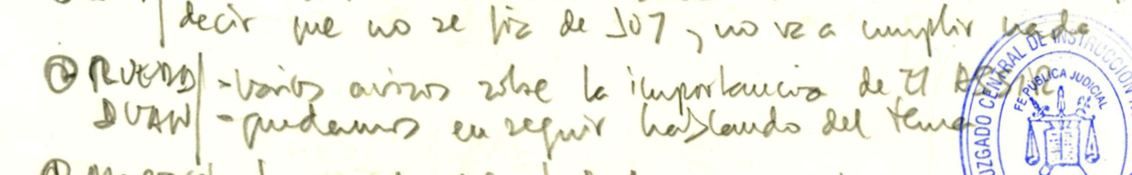 decir que no se fia de JU7 y no va a cumplir nada
② RUEDA - varios avisos sobre la importancia de El
DUAN - quedamos en seguir hablando del tema
JUZGADO CENTRAL DE INSTRUCCIÓN
FE PÚBLICA JUDICIAL